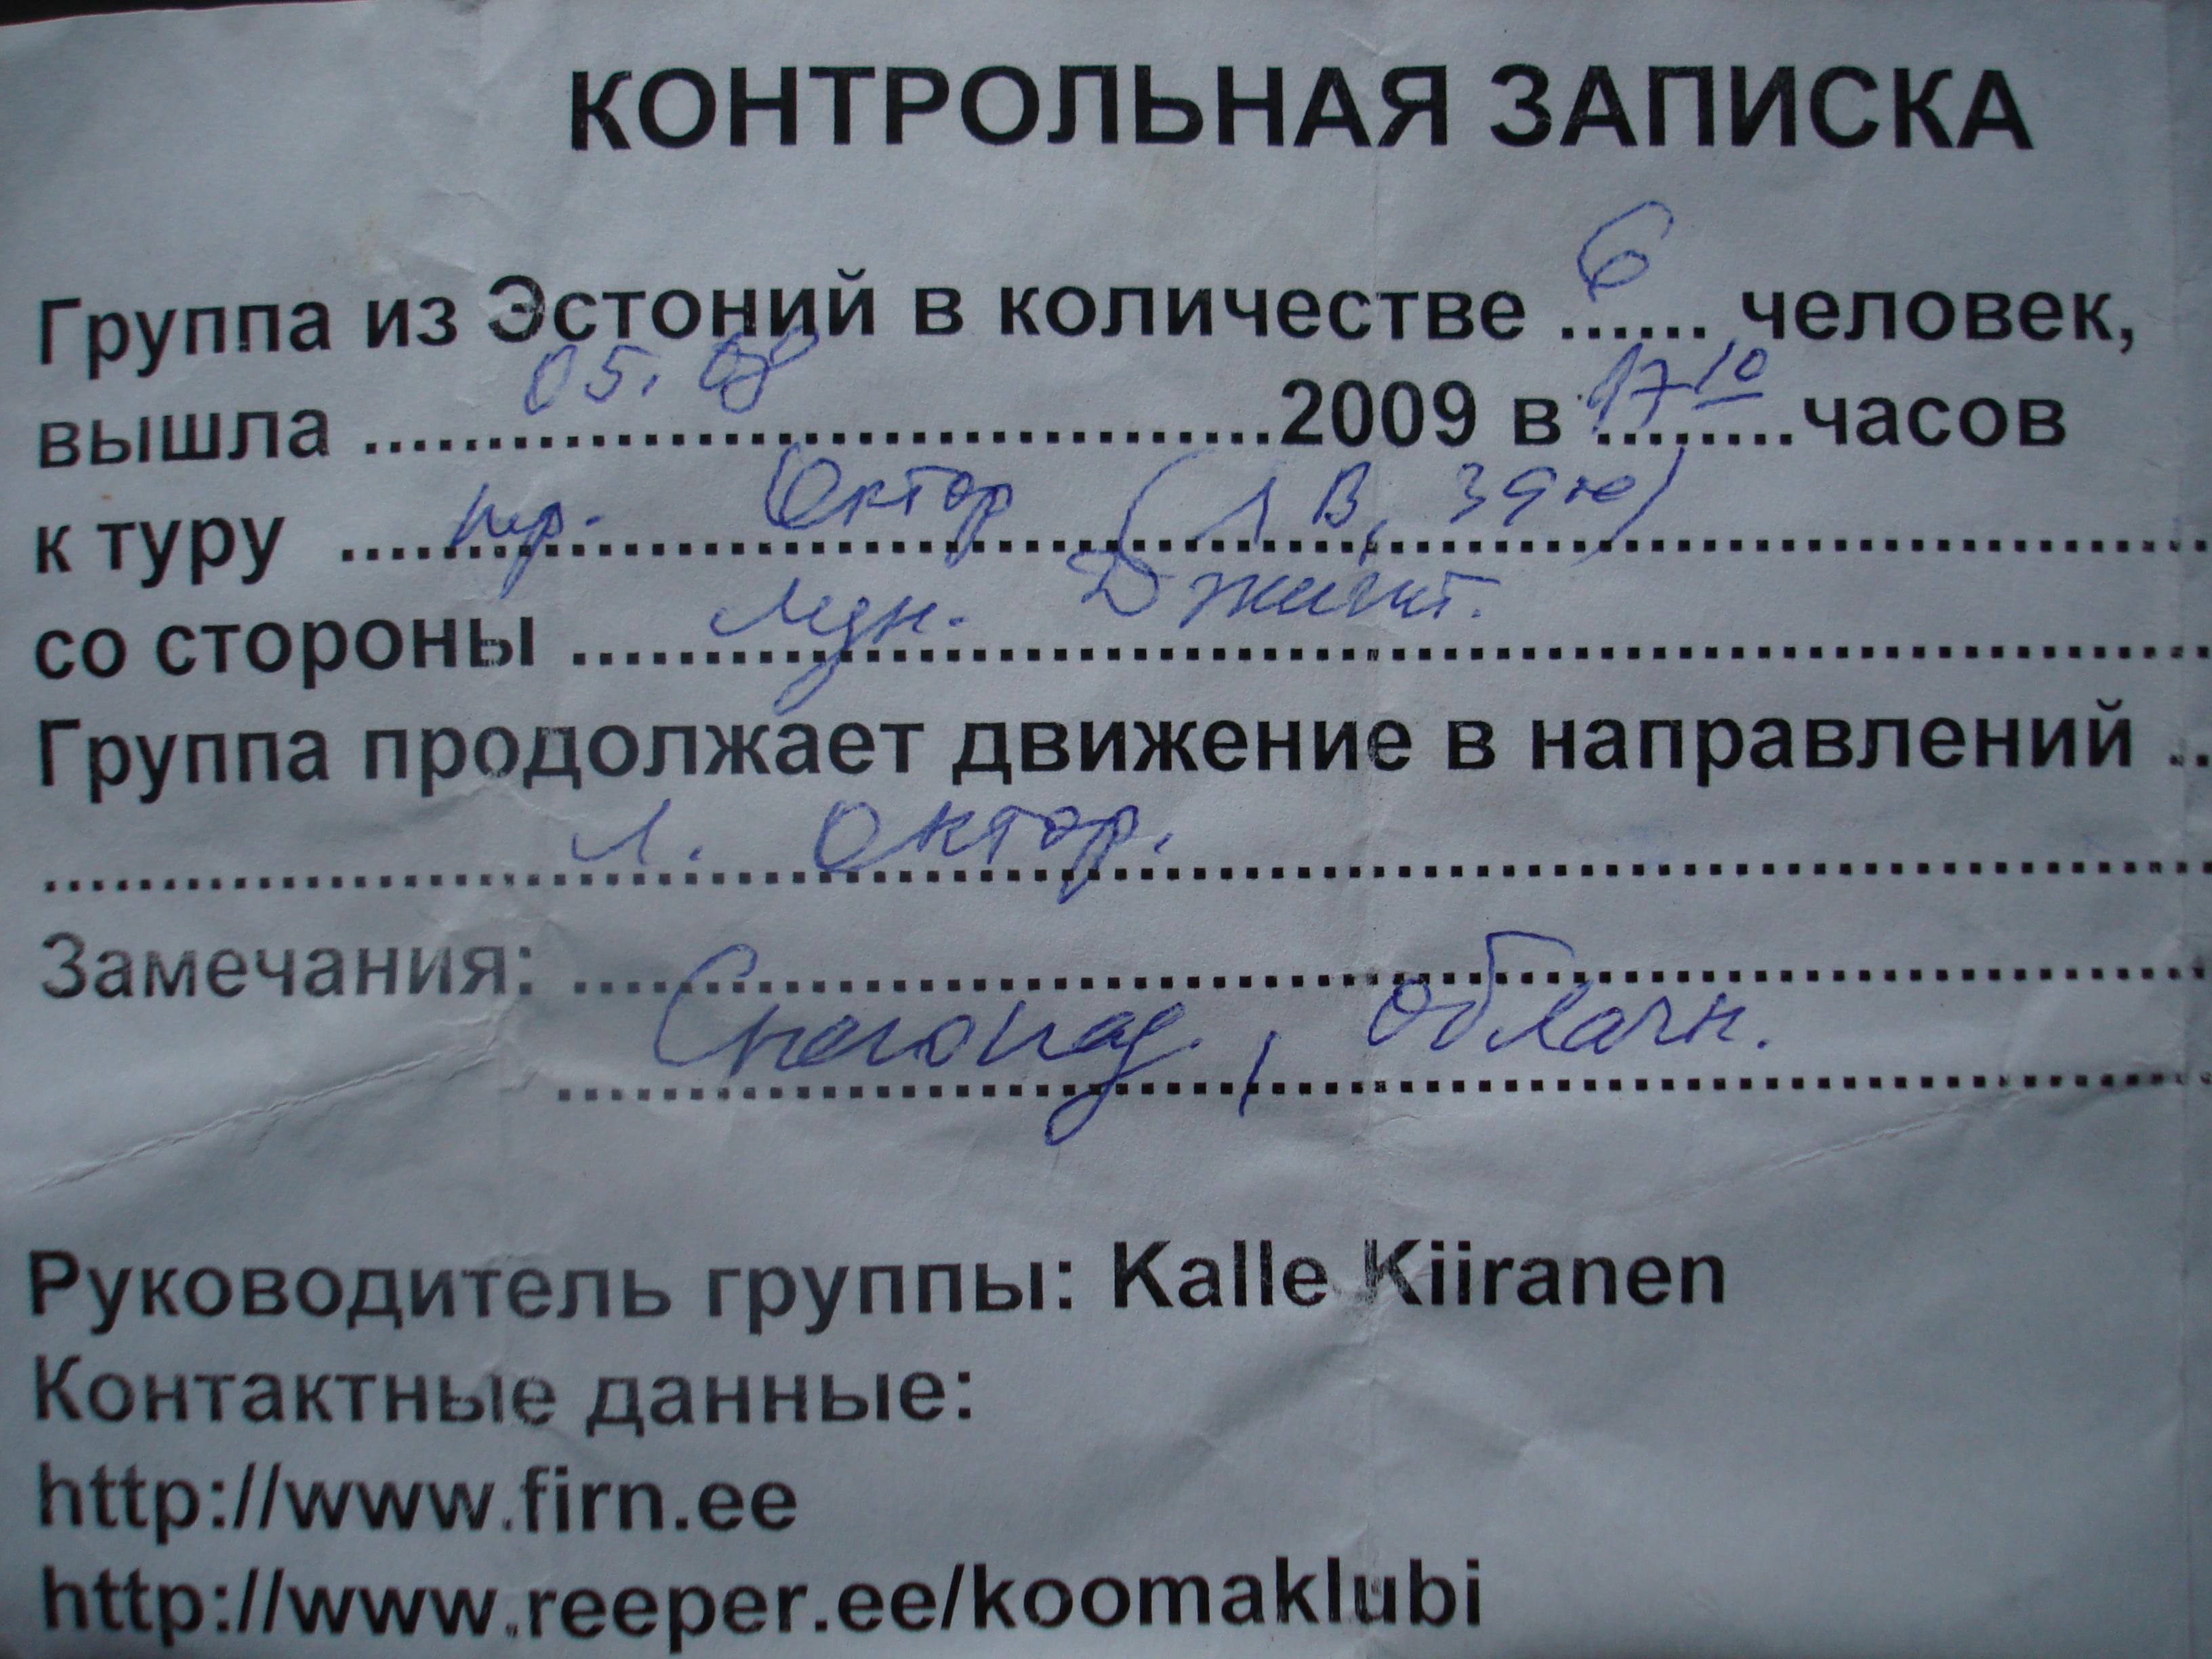 КОНТРОЛЬНАЯ ЗАПИСКА
Группа из Эстоний в количестве ..6.... человек,
вышла 05.08 2009 в 17 10 часов
к туру пер. Октор (1В,
со стороны Джигит.
Группа продолжает движение в направлений ..
л. Октор.
Замечания:
Снегопад., облачн.
Руководитель группы: Kalle Kiiranen
Контактные данные:
http://www.firn.ee
http://www.reeper.ee/koomaklubi